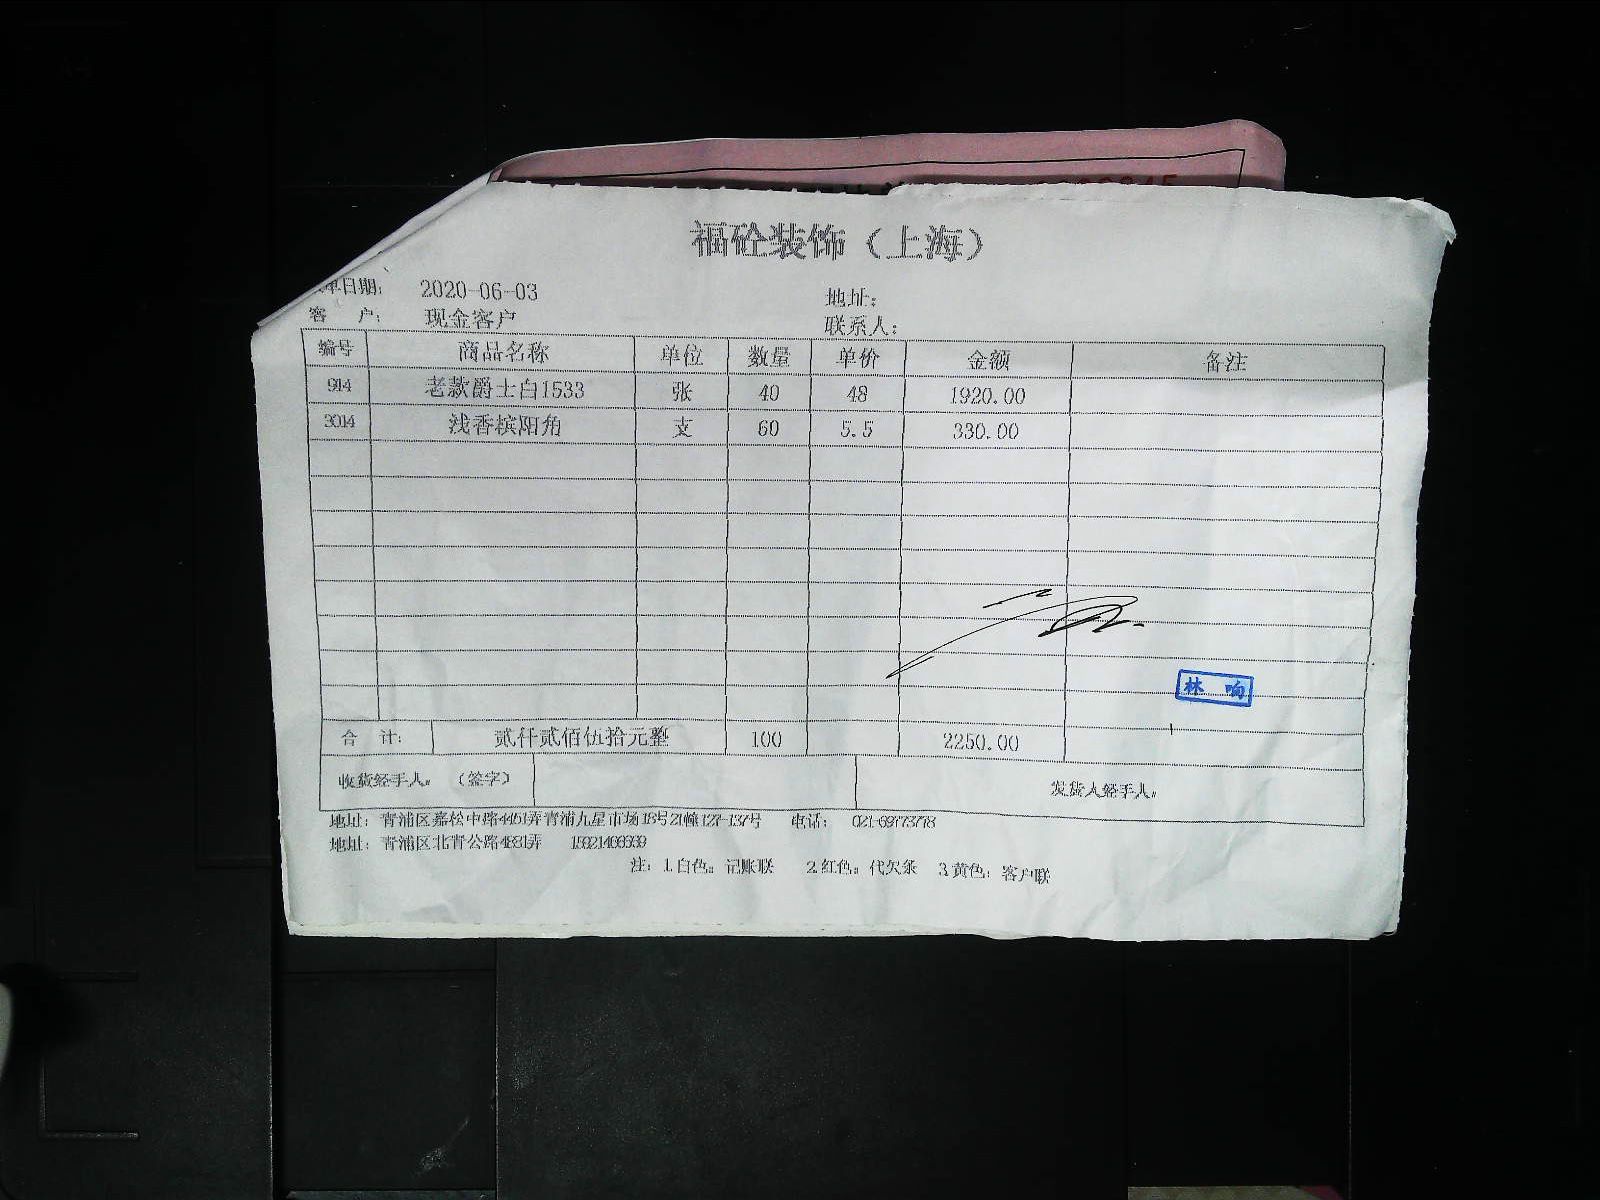 福砼装饰（上海）
单日期: 2020-06-03 地址:
客 户: 现金客户 联系人:
编号 商品名称 单位 数量 单价 金额 备注
914 老款爵士白1533 张 40 48 1920.00
3014 浅香槟阳角 支 60 5.5 330.00
林 响
合 计: 贰仟贰佰伍拾元整 100 2250.00
收货经手人: （签字） 发货人经手人:
地址: 青浦区嘉松中路4451弄青浦九星市场18号21幢127-137号 电话: 021-69773778
地址: 青浦区北青公路4831弄
注: 1.白色: 记账联 2.红色: 代欠条 3.黄色: 客户联